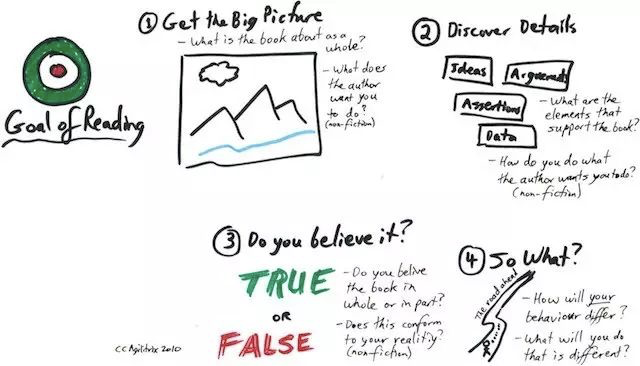 Goal of Reading
① Get the Big Picture
- What is the book about as a
whole?
- What does
the author
want you
to do?
(non-fiction)
② Discover Details
Ideas
Arguements
Assertions
Data
- What are the
elements that
support the book?
- How do you do what
the author wants you to do?
(non-fiction)
③ Do you believe it?
TRUE
OR
FALSE
- Do you belive
the book in
whole or in part?
- Does this conform
to your realitiy?
(non-fiction)
④ So What?
The road ahead
- How will your
behaviour differ?
- What will you do
that is different?
CC Agilitrix 2010